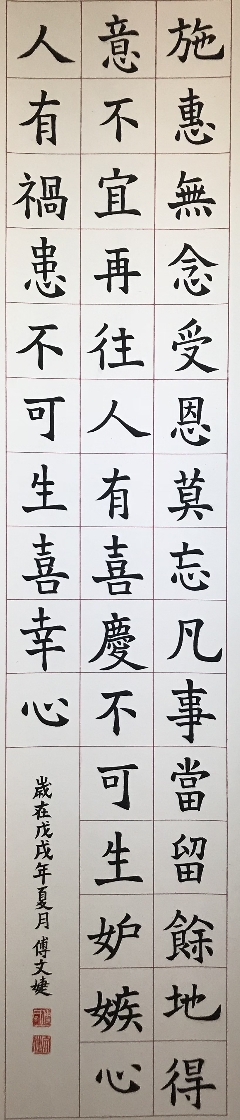 施惠無念受恩莫忘凡事當留餘地得
意不宜再往人有喜慶不可生妒嫉心
人有禍患不可生喜幸心
歲在戊戌年夏月傅文婕